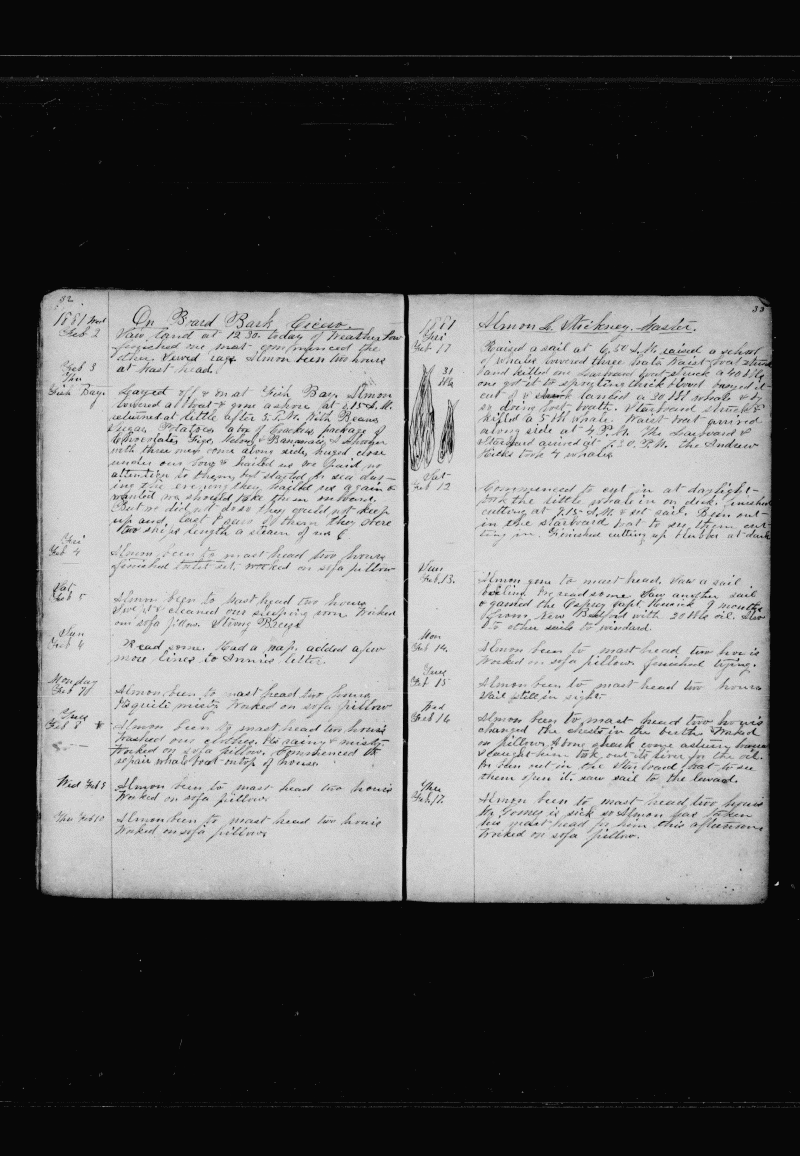 32
1881 Wed
On Board Bark Cicero
Feb 2
Saw land at 12.30. today of Weather
finished one mat commenced the
other. Sewed rags Almon been two hours
at mast head.
Feb 3
Thu
Fish Bay.
Layed off & on at Fish Bay Almon
lowered a boat & gone ashore at 8.15 A.M.
returned at little after 3. P.M. With Beans
Sugar Potatoes a box of Crackers package of
Chocolates, Figs, Melons & Bananas,
with three men come along side,
under our long & hailed us we paid no
attention to them, but started for sea dur-
ing the evening they hailed us again &
wanted we should take them onboard
But as did not do so they could not keep
up and last I saw of them they were
two ships length a stearn of us
Fri
Feb 4
Almon been to mast head two hours
finished toilet set, worked on sofa pillow
Sat
Feb 5
Almon been to mast head two hours
& cleaned our sleeping room Worked
on sofa pillow. Strong Breeze
Sun
Feb 6
Read some. Had a nap. added a few
more lines to Annie's letter.
Monday
Feb 7
Almon been to mast head two hours
Its quite misty Worked on sofa pillow
Tues
Feb 8
Almon been to mast head two hours
Washed our clothes. Its rainy & misty
Worked on sofa pillow. Commenced to
repair whale boat on top of house.
Wed Feb 9
Almon been to mast head two hours
Worked on sofa pillow
Thu Feb 10
Almon been to mast head two hours
Worked on sofa pillow
33
1881
Almon L. Stickney. Master.
Fri
Feb 11
Raised a sail at 6.30 A.M. raised a school
of whales lowered three boats Waist boat struck
and killed one Larboard boat struck a 40 Bbl
one got it to spouting thick blood
cut if & landed a 30 Bbl whale &
Starboard struck &
killed a 5 Bbl whale. Waist boat arrived
along side at 4. P.M. The Larboard &
Starboard arrived at 7.20. P.M. the Andrew
Hicks took 4 whales
31
Bbls
Sat
Feb 12
Commenced to cut in at daylight
took the little whale in on deck. finished
cutting at 7.15 A.M. & set sail. Been out
in the starboard boat to see them cut-
ting in. Finished cutting up blubber at dark
Sun
Feb. 13.
Almon gone to mast head. Saw a sail
boiling. Ive read some. Saw another sail
& gamed the Osprey Capt. 9 months
from New Bedford with 20 Bbls oil. Saw
to other sails to windard.
Mon
Feb 14.
Almon been to mast head two hours
Worked on sofa pillow. finished trying.
Tues
Feb 15
Almon been to mast head two hours
Sail still in sight
Wed
Feb 16
Almon been to mast head two hours
changed the chests in the berths Worked
on pillow. A bone shark come astern
& caught him took out its liver for the oil.
Ive been out in the Starboard boat to see
them open it. saw sail to the leward.
Thu
Feb. 17.
Almon been to mast head two hours
Mr Gomez is sick so Almon has taken
his mast head for him this afternoon
Worked on sofa pillow.